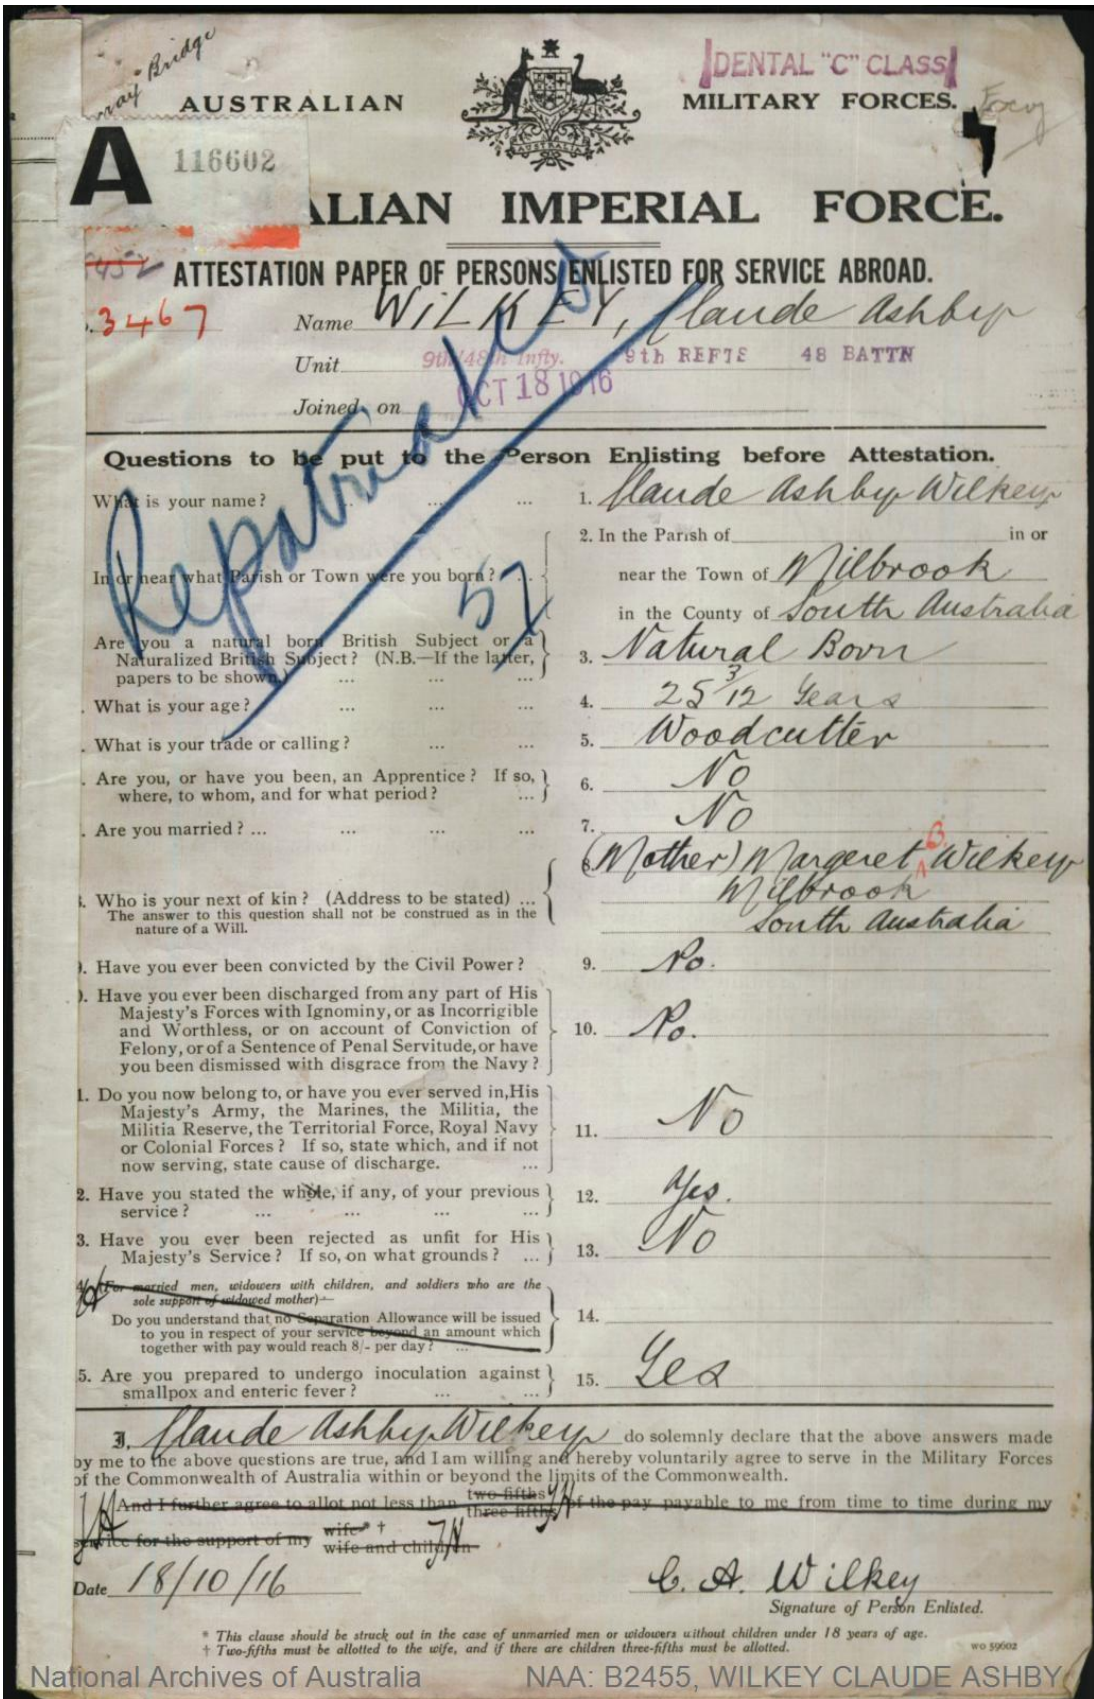 Bridge
DENTAL "C" CLASS
AUSTRALIAN
MILITARY FORCES.
AUSTRALIA
A 116602
ALIAN IMPERIAL FORCE.
ATTESTATION PAPER OF PERSONS ENLISTED FOR SERVICE ABROAD.
3467
Name WILKEY, Claude Ashby
Unit 9th/48th Infty. 9th REFTS 48 BATTN
OCT 18 1916
Joined on
Repatriated
57
Questions to be put to the Person Enlisting before Attestation.
What is your name? ... ... 1. Claude Ashby Wilkey
2. In the Parish of in or
In or near what Parish or Town were you born? ... near the Town of Milbrook
in the County of South Australia
Are you a natural born British Subject or a
Naturalized British Subject? (N.B.—If the latter, 3. Natural Born
papers to be shown.) ... ... ...
. What is your age? ... ... ... 4. 25 3/12 Years
. What is your trade or calling? ... ... 5. Woodcutter
. Are you, or have you been, an Apprentice? If so,
where, to whom, and for what period? ... 6. No
. Are you married? ... ... ... ... 7. No
8. (Mother) Margeret B. Wilkey
. Who is your next of kin? (Address to be stated) ... Milbrook
The answer to this question shall not be construed as in the
nature of a Will. South Australia
). Have you ever been convicted by the Civil Power? 9. No.
). Have you ever been discharged from any part of His
Majesty's Forces with Ignominy, or as Incorrigible
and Worthless, or on account of Conviction of 10. No.
Felony, or of a Sentence of Penal Servitude, or have
you been dismissed with disgrace from the Navy?
1. Do you now belong to, or have you ever served in, His
Majesty's Army, the Marines, the Militia, the
Militia Reserve, the Territorial Force, Royal Navy 11. No
or Colonial Forces? If so, state which, and if not
now serving, state cause of discharge. ...
2. Have you stated the whole, if any, of your previous 12. Yes.
service? ... ... ... ...
3. Have you ever been rejected as unfit for His
Majesty's Service? If so, on what grounds? ... 13. No
(For married men, widowers with children, and soldiers who are the
sole support of widowed mother)—
Do you understand that no Separation Allowance will be issued 14.
to you in respect of your service beyond an amount which
together with pay would reach 8/- per day? ...
5. Are you prepared to undergo inoculation against 15. Yes
smallpox and enteric fever? ... ...
I, Claude Ashby Wilkey do solemnly declare that the above answers made
by me to the above questions are true, and I am willing and hereby voluntarily agree to serve in the Military Forces
of the Commonwealth of Australia within or beyond the limits of the Commonwealth.
And I further agree to allot not less than two-fifths three-fifths of the pay payable to me from time to time during my
service for the support of my wife* † wife and children
Date 18/10/16
C. A. Wilkey
Signature of Person Enlisted.
* This clause should be struck out in the case of unmarried men or widowers without children under 18 years of age.
† Two-fifths must be allotted to the wife, and if there are children three-fifths must be allotted.
WO 59602
National Archives of Australia NAA: B2455, WILKEY CLAUDE ASHBY